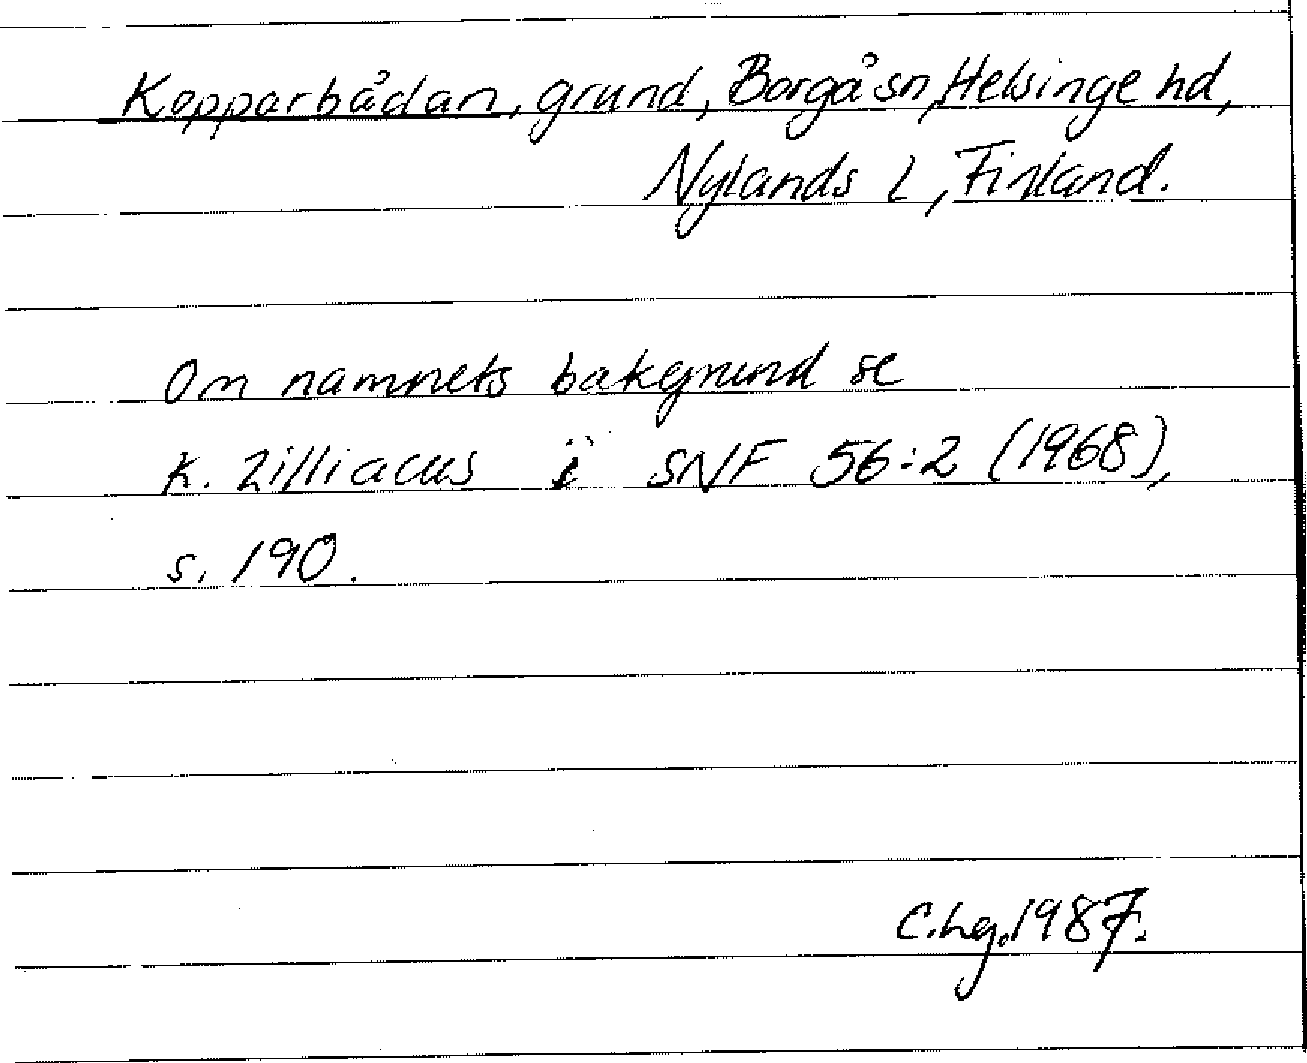 Kopparbådan, grund, Borgå sn, Helsinge hd,
Nylands l, Finland.
Om namnets bakgrund se
K. Zilliacus i SNF 56:2 (1968),
s. 190.
C.hg.1987.